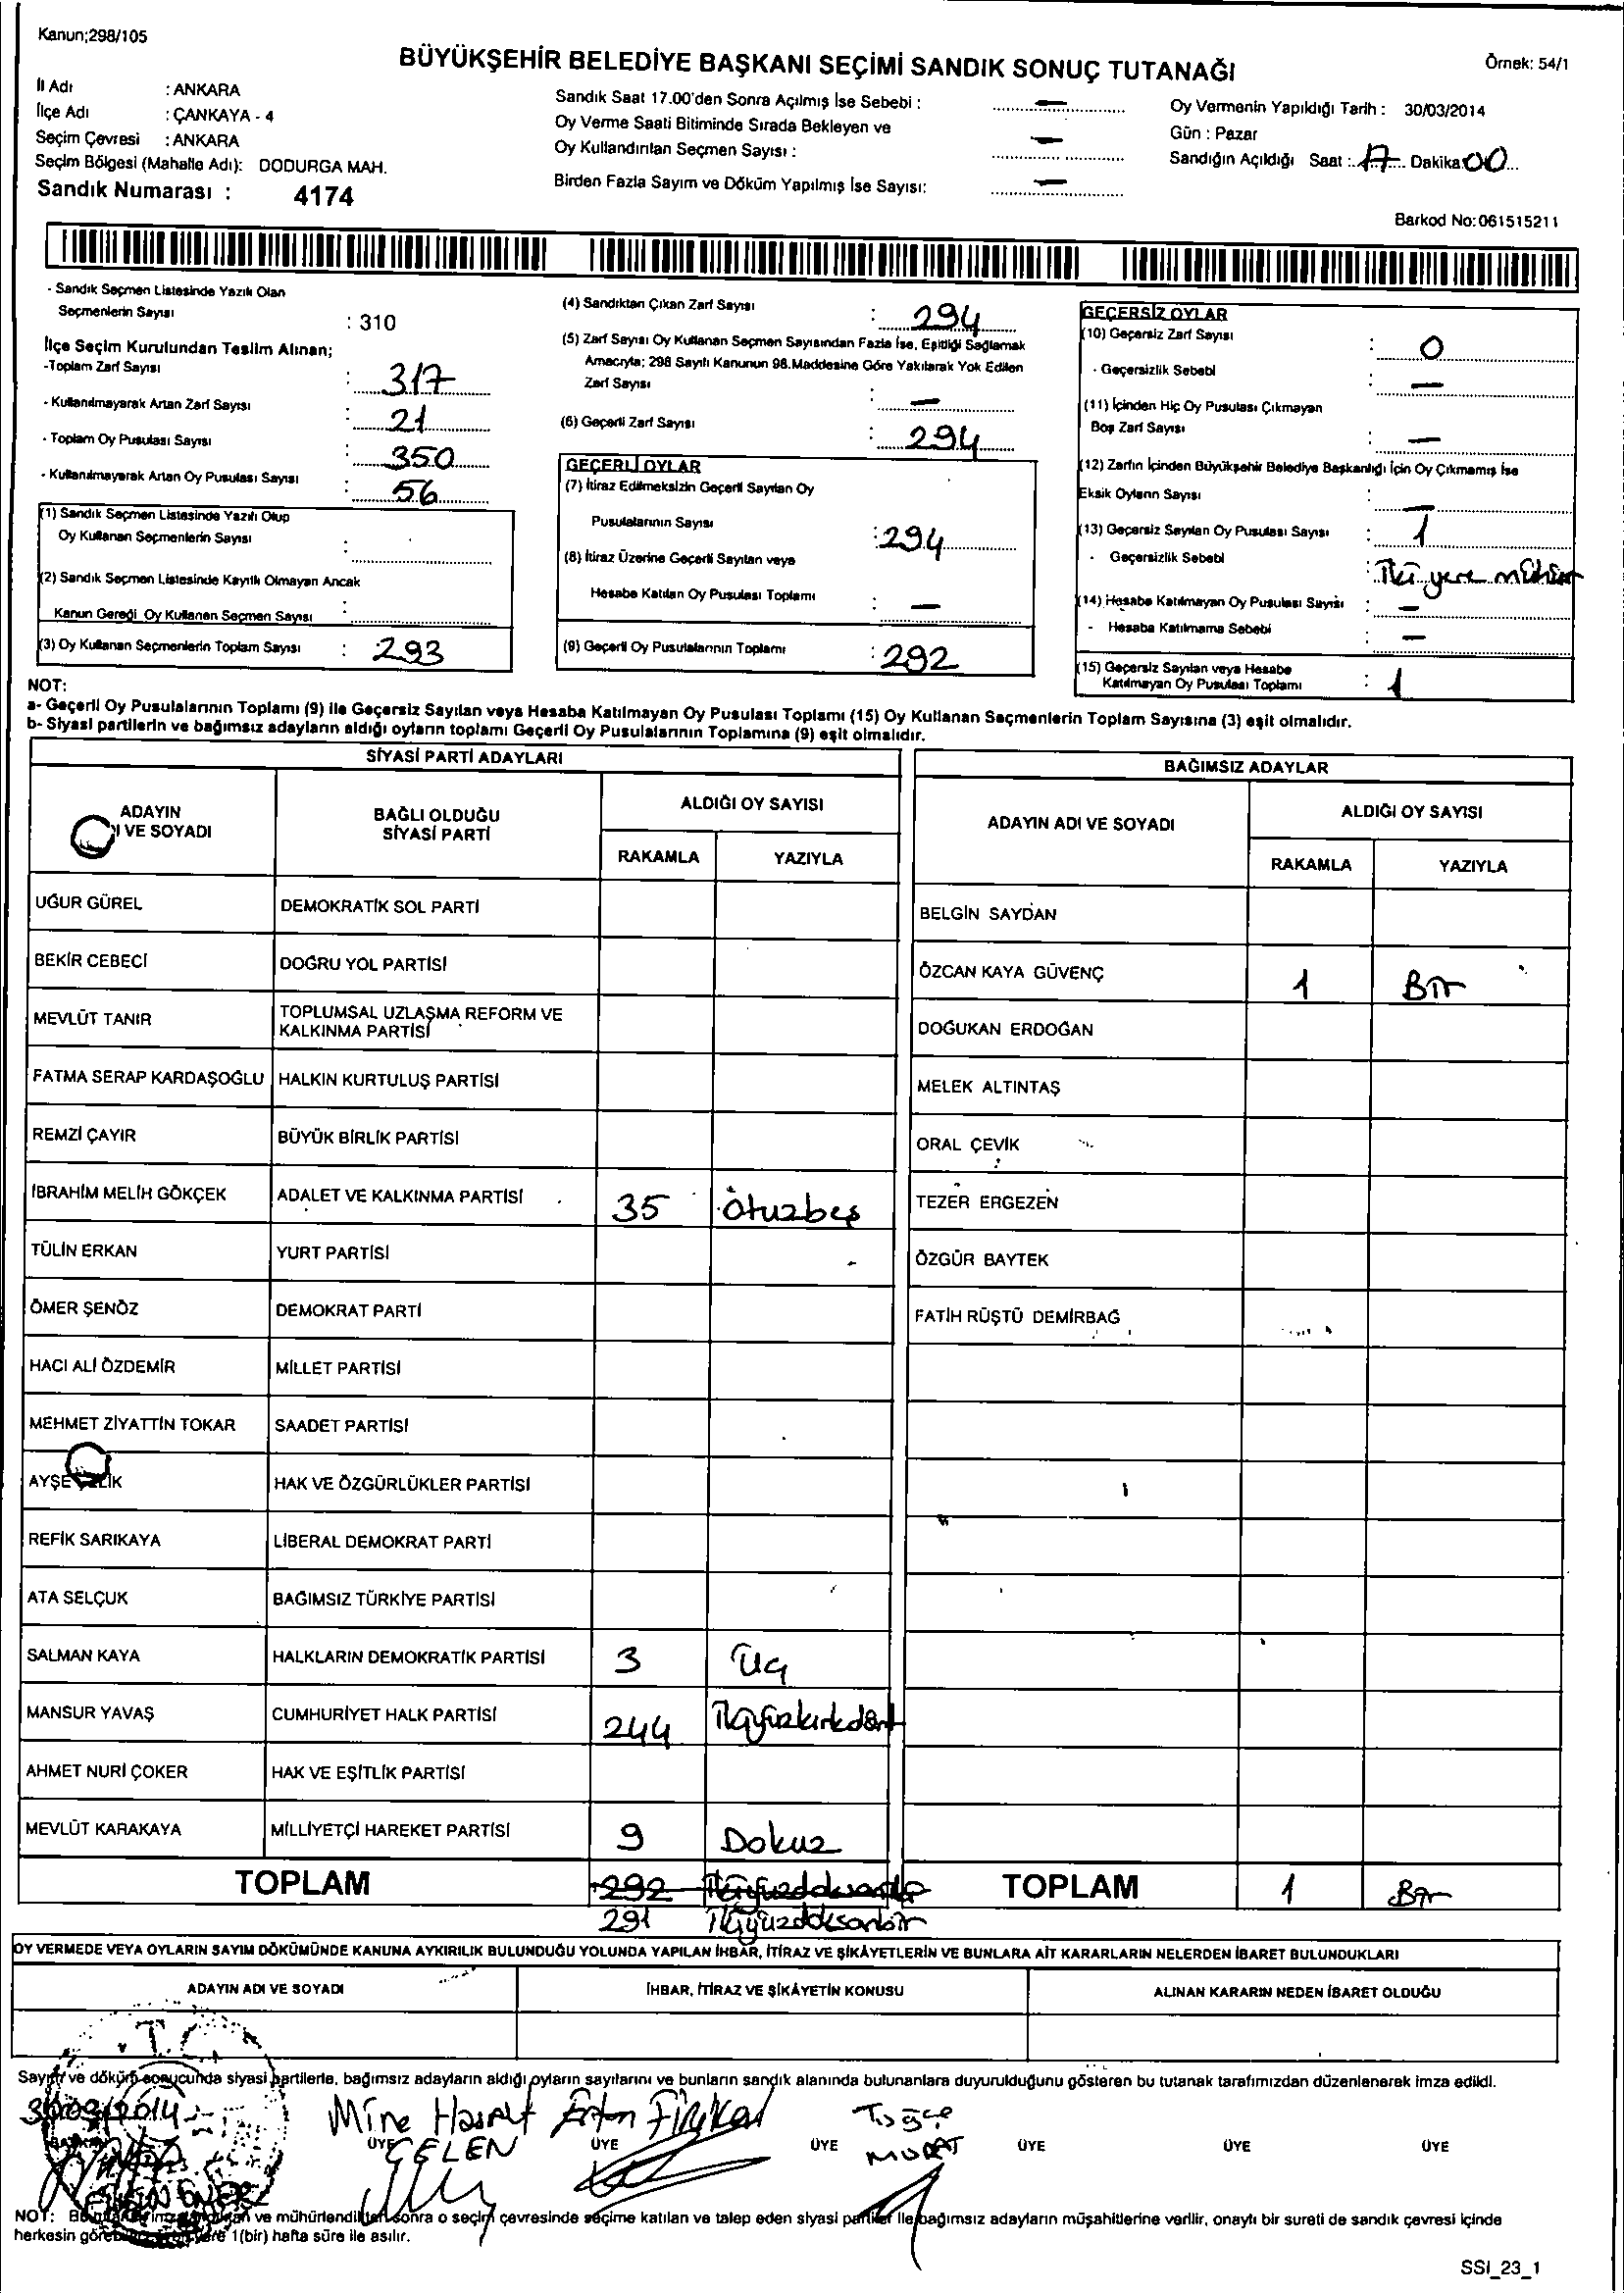 Kanun;298/105
BÜYÜKŞEHİR BELEDİYE BAŞKANI SEÇİMİ SANDIK SONUÇ TUTANAĞI
Örnek: 54/1
İl Adı : ANKARA
İlçe Adı : ÇANKAYA - 4
Seçim Çevresi : ANKARA
Seçim Bölgesi (Mahalle Adı): DODURGA MAH.
Sandık Numarası : 4174
Sandık Saat 17.00'den Sonra Açılmış İse Sebebi : —
Oy Verme Saati Bitiminde Sırada Bekleyen ve
Oy Kullandırılan Seçmen Sayısı : —
Birden Fazla Sayım ve Döküm Yapılmış İse Sayısı: —
Oy Vermenin Yapıldığı Tarih : 30/03/2014
Gün : Pazar
Sandığın Açıldığı Saat : 17 Dakika 00
Barkod No:061515211
- Sandık Seçmen Listesinde Yazılı Olan
Seçmenlerin Sayısı : 310
İlçe Seçim Kurulundan Teslim Alınan;
-Toplam Zarf Sayısı : 317
- Kullanılmayarak Artan Zarf Sayısı : 21
- Toplam Oy Pusulası Sayısı : 350
- Kullanılmayarak Artan Oy Pusulası Sayısı : 56
(1) Sandık Seçmen Listesinde Yazılı Olup
Oy Kullanan Seçmenlerin Sayısı :
(2) Sandık Seçmen Listesinde Kayıtlı Olmayan Ancak
Kanun Gereği Oy Kullanan Seçmen Sayısı :
(3) Oy Kullanan Seçmenlerin Toplam Sayısı : 293
(4) Sandıktan Çıkan Zarf Sayısı : 294
(5) Zarf Sayısı Oy Kullanan Seçmen Sayısından Fazla İse, Eşitliği Sağlamak
Amacıyla; 298 Sayılı Kanunun 98.Maddesine Göre Yakılarak Yok Edilen
Zarf Sayısı : —
(6) Geçerli Zarf Sayısı : 294
GEÇERLİ OYLAR
(7) İtiraz Edilmeksizin Geçerli Sayılan Oy
Pusulalarının Sayısı : 294
(8) İtiraz Üzerine Geçerli Sayılan veya
Hesaba Katılan Oy Pusulası Toplamı : —
(9) Geçerli Oy Pusulalarının Toplamı : 292
GEÇERSİZ OYLAR
(10) Geçersiz Zarf Sayısı : 0
- Geçersizlik Sebebi : —
(11) İçinden Hiç Oy Pusulası Çıkmayan
Boş Zarf Sayısı : —
(12) Zarfın İçinden Büyükşehir Belediye Başkanlığı İçin Oy Çıkmamış İse
Eksik Oyların Sayısı : —
(13) Geçersiz Sayılan Oy Pusulası Sayısı : 1
- Geçersizlik Sebebi : İki yere mühür
(14) Hesaba Katılmayan Oy Pusulası Sayısı : —
- Hesaba Katılmama Sebebi : —
(15) Geçersiz Sayılan veya Hesaba
Katılmayan Oy Pusulası Toplamı : 1
NOT:
a- Geçerli Oy Pusulalarının Toplamı (9) ile Geçersiz Sayılan veya Hesaba Katılmayan Oy Pusulası Toplamı (15) Oy Kullanan Seçmenlerin Toplam Sayısına (3) eşit olmalıdır.
b- Siyasi partilerin ve bağımsız adayların aldığı oyların toplamı Geçerli Oy Pusulalarının Toplamına (9) eşit olmalıdır.
SİYASİ PARTİ ADAYLARI
ADAYIN
I VE SOYADI
BAĞLI OLDUĞU
SİYASİ PARTİ
ALDIĞI OY SAYISI
RAKAMLA YAZIYLA
UĞUR GÜREL DEMOKRATİK SOL PARTİ
BEKİR CEBECİ DOĞRU YOL PARTİSİ
MEVLÜT TANIR TOPLUMSAL UZLAŞMA REFORM VE
KALKINMA PARTİSİ
FATMA SERAP KARDAŞOĞLU HALKIN KURTULUŞ PARTİSİ
REMZİ ÇAYIR BÜYÜK BİRLİK PARTİSİ
İBRAHİM MELİH GÖKÇEK ADALET VE KALKINMA PARTİSİ 35 Otuzbeş
TÜLİN ERKAN YURT PARTİSİ
ÖMER ŞENÖZ DEMOKRAT PARTİ
HACI ALİ ÖZDEMİR MİLLET PARTİSİ
MEHMET ZİYATTİN TOKAR SAADET PARTİSİ
AYŞE ÇELİK HAK VE ÖZGÜRLÜKLER PARTİSİ
REFİK SARIKAYA LİBERAL DEMOKRAT PARTİ
ATA SELÇUK BAĞIMSIZ TÜRKİYE PARTİSİ
SALMAN KAYA HALKLARIN DEMOKRATİK PARTİSİ 3 Üç
MANSUR YAVAŞ CUMHURİYET HALK PARTİSİ 244 İkiyüzkırkdört
AHMET NURİ ÇOKER HAK VE EŞİTLİK PARTİSİ
MEVLÜT KARAKAYA MİLLİYETÇİ HAREKET PARTİSİ 9 Dokuz
TOPLAM 292 İkiyüzdoksaniki
291 İkiyüzdoksanbir
BAĞIMSIZ ADAYLAR
ADAYIN ADI VE SOYADI
ALDIĞI OY SAYISI
RAKAMLA YAZIYLA
BELGİN SAYDAN
ÖZCAN KAYA GÜVENÇ 1 Bir
DOĞUKAN ERDOĞAN
MELEK ALTINTAŞ
ORAL ÇEVİK
TEZER ERGEZEN
ÖZGÜR BAYTEK
FATİH RÜŞTÜ DEMİRBAĞ
TOPLAM 1 Bir
OY VERMEDE VEYA OYLARIN SAYIM DÖKÜMÜNDE KANUNA AYKIRILIK BULUNDUĞU YOLUNDA YAPILAN İHBAR, İTİRAZ VE ŞİKÂYETLERİN VE BUNLARA AİT KARARLARIN NELERDEN İBARET BULUNDUKLARI
ADAYIN ADI VE SOYADI İHBAR, İTİRAZ VE ŞİKÂYETİN KONUSU ALINAN KARARIN NEDEN İBARET OLDUĞU
T.C.
Sayım ve döküm sonucunda siyasi partilerle, bağımsız adayların aldığı oyların sayılarını ve bunların sandık alanında bulunanlara duyurulduğunu gösteren bu tutanak tarafımızdan düzenlenerek imza edildi.
30/03/2014 Mine Hasret Tuğçe
BAŞKAN ÜYE GELEN ÜYE ÜYE MURAT ÜYE ÜYE ÜYE
NOT: ve mühürlendikten sonra o seçim çevresinde seçime katılan ve talep eden siyasi partiler ile bağımsız adayların müşahitlerine verilir, onaylı bir sureti de sandık çevresi içinde
herkesin görebileceği bir yere 1(bir) hafta süre ile asılır.
SSI_23_1